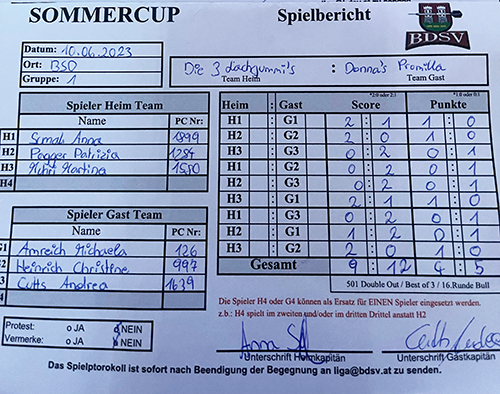 SOMMERCUP Spielbericht
BDSV
Datum: 10.06.2023
Ort: BSD
Gruppe: 1
Die 3 Lachgummi's : Donna's Promilla
Team Heim Team Gast
Spieler Heim Team
Name PC Nr:
H1 Anna
H2 Pogger Patrizia 1284
H3 Martina
H4
Spieler Gast Team
Name PC Nr:
Amreich Michaela 126
Heinrich Christine 997
Cutts Andrea 1639
*2:0 oder 2:1 *1:0 oder 0:1
Heim : Gast Score Punkte
H1 : G1 2 : 1 1 : 0
H2 : G2 2 : 0 1 : 0
H3 : G3 0 : 2 0 : 1
H1 : G2 0 : 2 0 : 1
H2 : G3 0 : 2 0 : 1
H3 : G1 2 : 1 1 : 0
H1 : G3 0 : 2 0 : 1
H2 : G1 1 : 2 0 : 1
H3 : G2 2 : 0 1 : 0
Gesamt 9 : 12 4 : 5
501 Double Out / Best of 3 / 16.Runde Bull
Die Spieler H4 oder G4 können als Ersatz für EINEN Spieler eingesetzt werden.
z.b.: H4 spielt im zweiten und/oder im dritten Drittel anstatt H2
Protest: o JA o NEIN
Vermerke: o JA o NEIN
Unterschrift Heimkapitän Unterschrift Gastkapitän
Das Spielptorokoll ist sofort nach Beendigung der Begegnung an liga@bdsv.at zu senden.